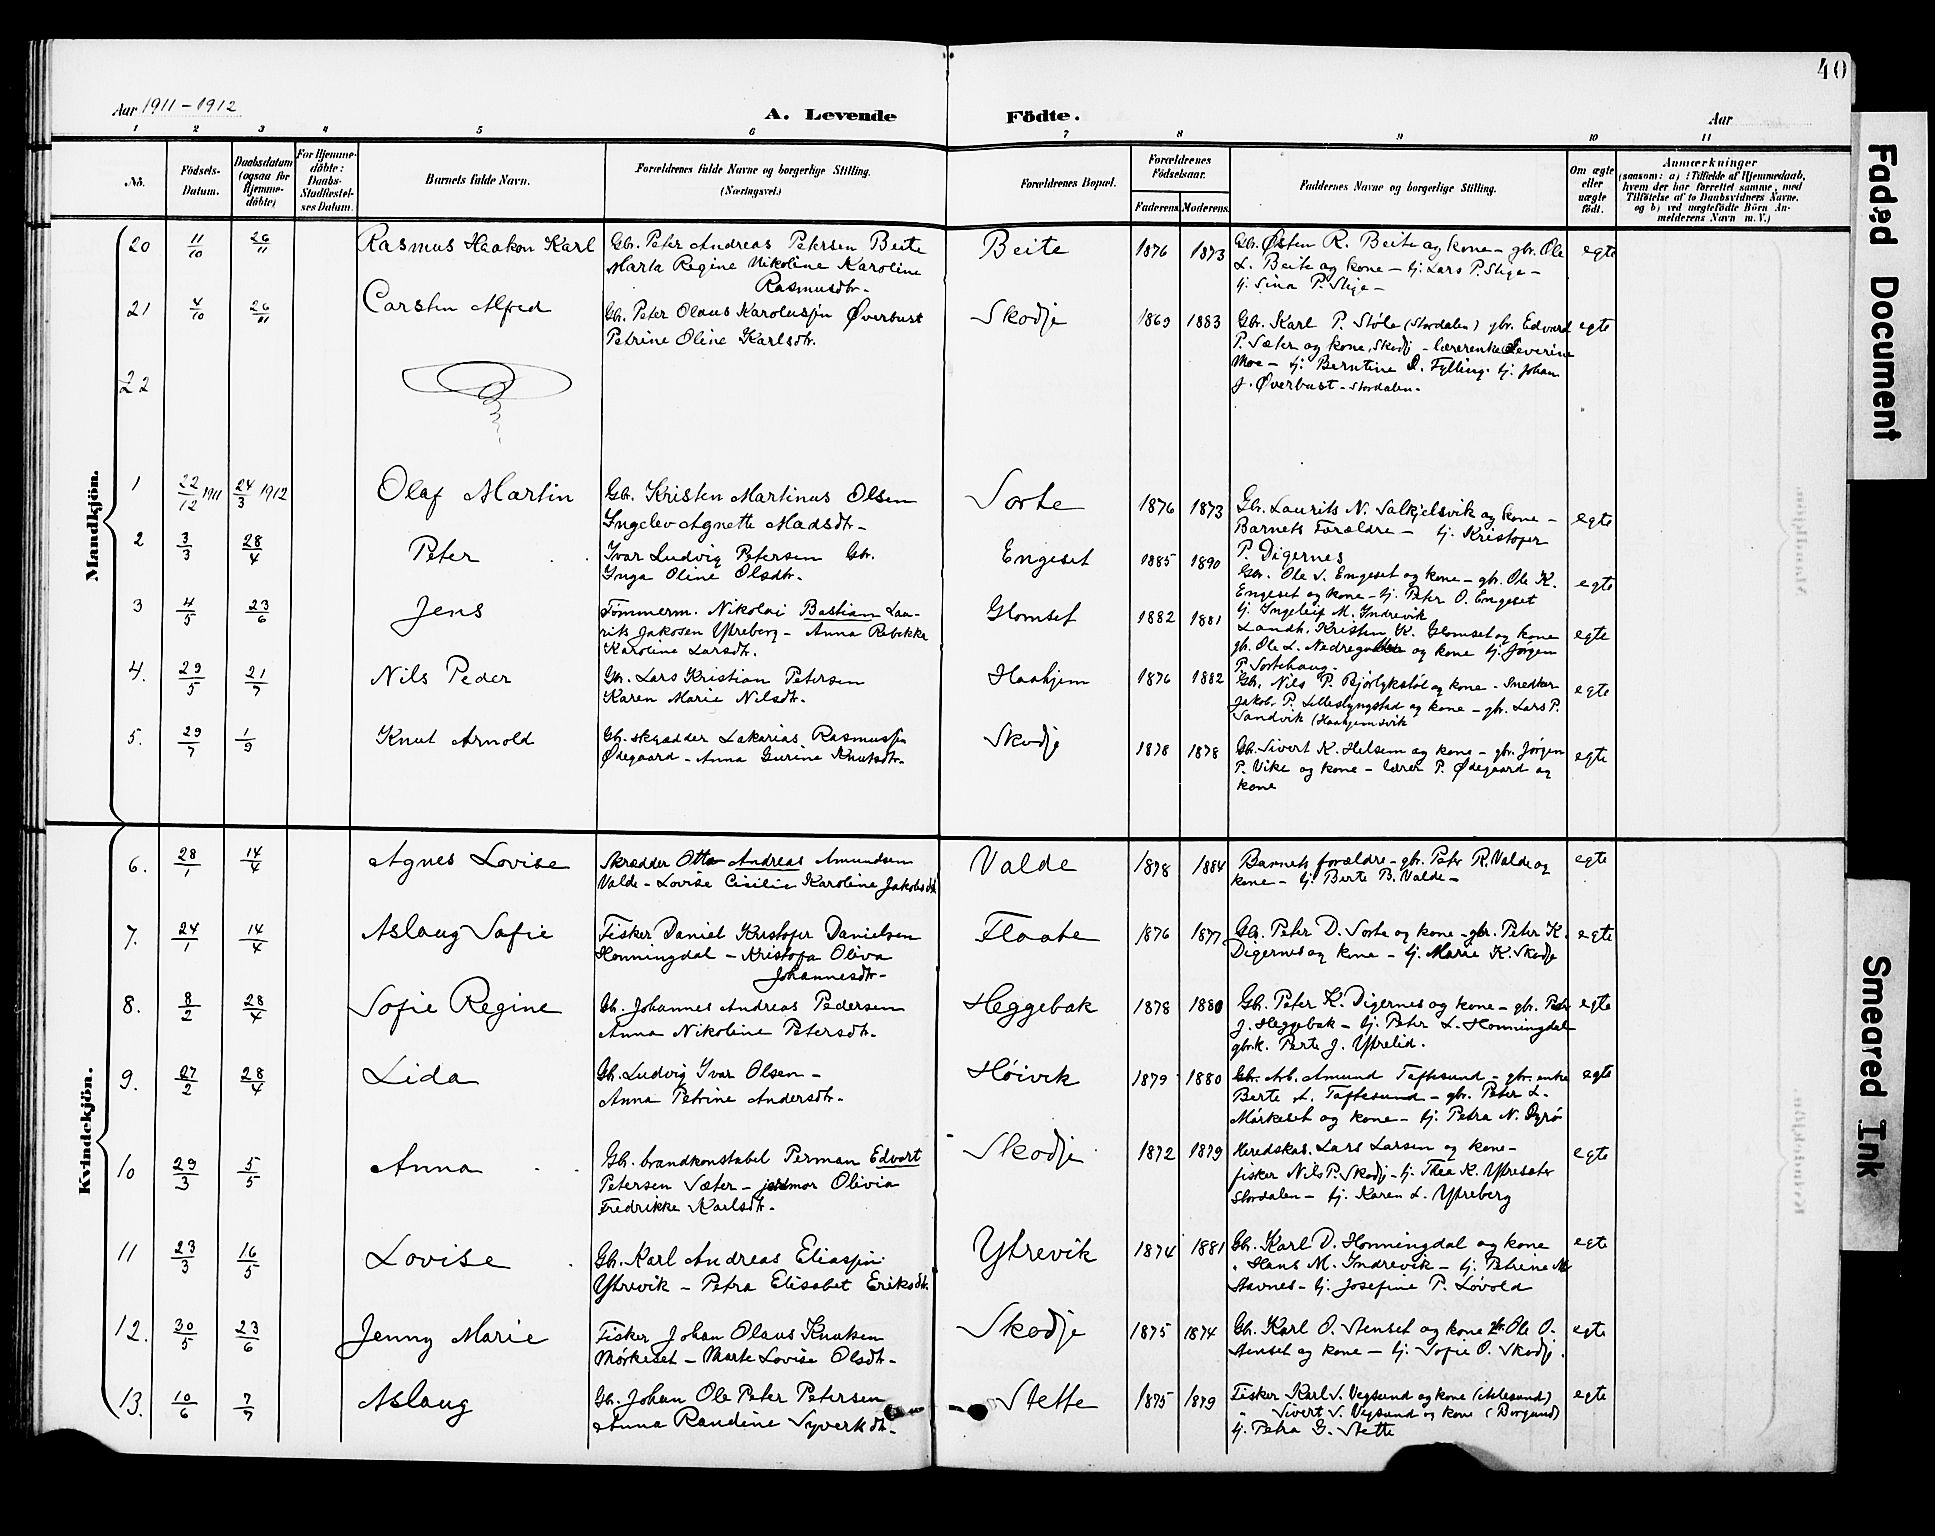 40
Aar 1911-1912
A. Levende Födte.
Aar
1 2 3 4 5 6 7 8 9 10 11
No.
Födsels-Datum.
Daabsdatum (ogsaa for hjemme-döbte)
For Hjemme-döbte: Daabs-Stadfæstel-ses Datum.
Barnets fulde Navn.
Forældrenes fulde Navne og borgerlige Stilling. (Næringsvei.)
Forældrenes Bopæl.
Forældrenes Födselsaar.
Faderens Moderens
Faddernes Navne og borgerlige Stilling.
Om ægte eller uægte födt.
Anmærkninger
(saasom: a) i Tilfælde af Hjemmedaab, hvem der har forrettet samme, med Tilföielse af to Daabsvidners Navne, og b) ved uægtefödte Börn An-melderens Navn m. V.)
Mandkjön.
20 11/10 26/11 Rasmus Haakon Karl Gb. Peter Andreas Petersen Beite Beite 1876 1873 Gb. Østen R. Beite og kone - gbr. Ole egte
Marta Regine Nikoline Karoline L. Beite og kone - tj. Lars P. Stige -
Rasmusdtr. tj. Sina P. Stige -
21 4/10 26/11 Carsten Alfred Gb. Peter Olaus Karolussen Øverbust Skodje 1869 1883 Gbr. Karl P. Støle (Stordalen) gbr. Edvard egte
Petrine Oline Karlsdtr. P. Sæter og kone, Skodj - lærerenke Severine
Moe - tj. Berntine D. Fylling. tj. Johan
J. Øverbust - Stordalen -
22
1 22/12 1911 24/3 1912 Olaf Martin Gb. Kristen Martinus Olsen Sorte 1876 1873 Gb. Laurits N. Salkjelsvik og kone - egte
Ingelev Agnette Madsdtr - Barnets Forældre - tj. Kristofer
P. Digernes
2 3/3 28/4 Peter Ivar Ludvig Petersen Gb. Engeset 1885 1890 Gbr. Ole S. Engeset og kone - gbr. Ole K. egte
Inga Oline Olsdtr. Engeset og kone - tj. Peter O. Engeset
tj. Ingeleif M. Indrevik
3 4/5 23/6 Jens Tømmerm. Nikolai Bastian Lau- Glomset 1882 1881 Landh. Kristen K. Glomset og kone egte
rits Jakosen Ytreberg - Anna Rebekka gb. Ole L. Nedregotten og kone tj. Jørgen
Karoline Larsdtr. P. Sortehaug.
4. 29/5 21/7 Nils Peder Gb. Lars Kristian Petersen Haahjem 1876 1882 Gb. Nils P. Bjørlykstøl og kone - Snedker egte
Karen Marie Nilsdtr. Jakob P. Lillestyngstad og kone - gb. Lars P.
Sandvik (Haahjemsvik
5. 29/7 1/9 Knut Arnold Gb. skrædder Zakarias Rasmussen Skodje 1878 1878 Gb. Sivert K. Helsem og kone - gbr. Jørgen egte
Ødegaard - Anna Gurine Knutsdtr. P. Vike og kone - Lærer P. Ødegaard og
kone
Kvindekjön.
6. 28/1 14/4 Agnes Lovise Skrædder Otto Andreas Amundsen Valde 1878 1884 Barnets forældre - gbr. Petr R. Valde og egte
Valde - Lovise Cicilie Karoline Jakobsdtr. kone - tj. Berte B. Valde -
7. 24/1 14/4 Aslaug Sofie Fisker Daniel Kristofer Danielsen Flaate 1876 1877 Gb. Peter D. Sorte og kone - gbr. Peter K. egte
Honningdal - Kristofa Oliva Digernes og kone - tj. Marie K. Skodje
Johannesdtr -
8. 8/2 28/4 Sofie Regine Gb. Johannes Andreas Pedersen Heggebak 1878 1880 Gb. Peter K. Digernes og kone - gbr. Peder egte
Anna Nikoline Petersdtr. J. Heggebak - tj. Peter L. Honningdal
gbrk. Berte J. Ytrelid.
9. 27/2 28/4 Lida Gb. Ludvig Ivar Olsen - Høivik 1879 1880 Gb. Arb. Amund Taftesund - gbr. enke egte
Anna Petrine Andersdtr - Berte L. Taftesund - gbr. Peter L.
Mørkeset og kone - tj. Petra N. Dyrø
10 29/3 5/5 Anna Gb. brandkonstabel Perman Edvart Skodje 1872 1879 Heredskas. Lars Larsen og kone - egte
Petersen Sæter - jordmor Olivia fisker Nils P. Skodj - tj. Thea K. Ytresæter
Fredrikke Karlsdtr - Stordalen - tj. Karen L. Ytreberg
11 23/3 16/5 Lovise Gb. Karl Andreas Eliassen Ytrevik 1874 1881 Gb. Karl D. Honningdal og kone egte
Ytrevik - Petra Elisabet Eriksdtr. " Hans M. Indrevik - tj. Petrine M
Stavnes - tj. Josefine P. Løvold
12. 30/5 23/6 Jenny Marie Fisker Johan Olaus Knutsen Skodje 1875 1874 Gb. Karl O. Stenset og kone gb. Ole O. egte
Mørkeset - Marte Lovise Olsdtr - Stenset og kone - tj. Sofie O. Skodj.
13. 10/6 7/7 Aslaug Gb. Johan Ole Peter Petersen Stette 1875 1879 Fisker Karl S. Vegsund og kone (Aalesund) egte
Anna Randine Syvertsdtr. " Sivert S. Vegsund og kone (Borgund)
tj. Petra G. Stette
Faded Document
Smeared Ink